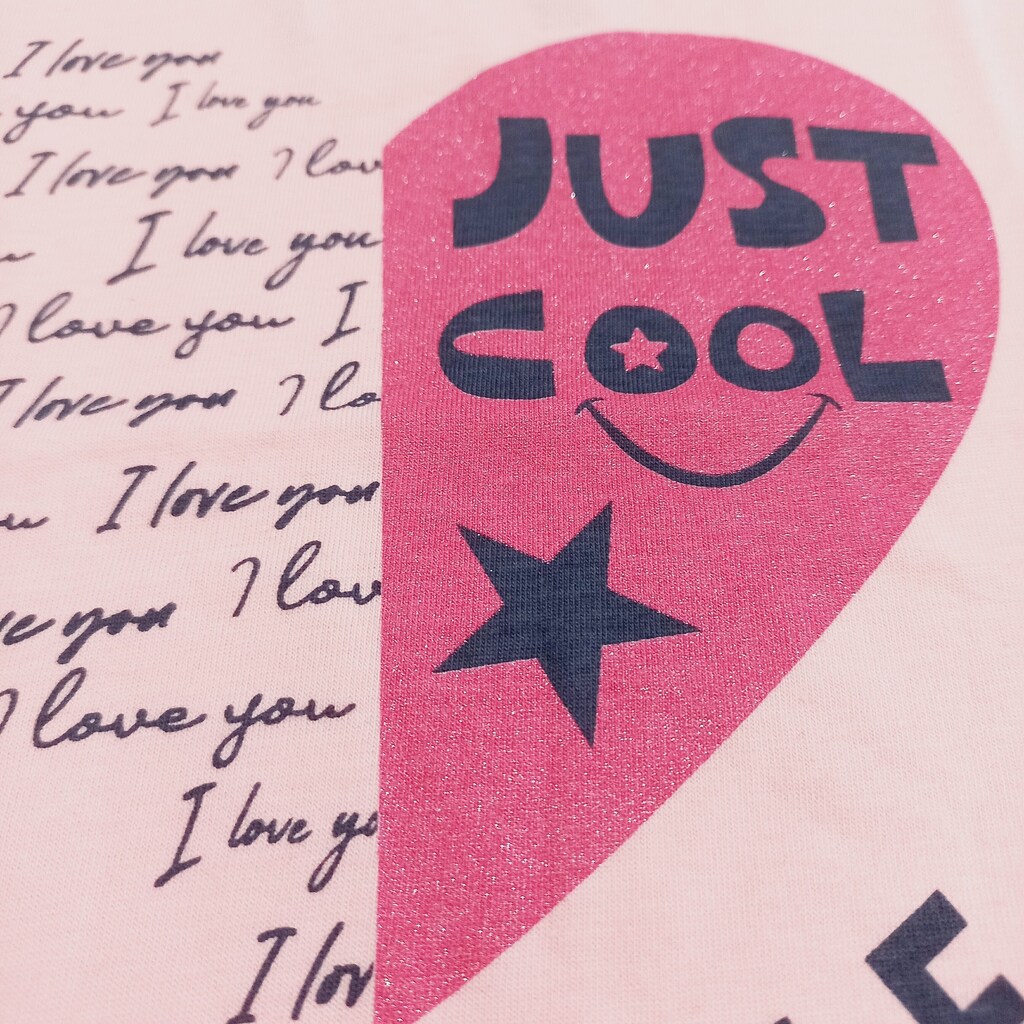 I love you
you I love you
I love you I lov
I love you
I love you I
I love you I lo
I love you
I lov
you
I love you
I love yo
I lov
JUST
COOL